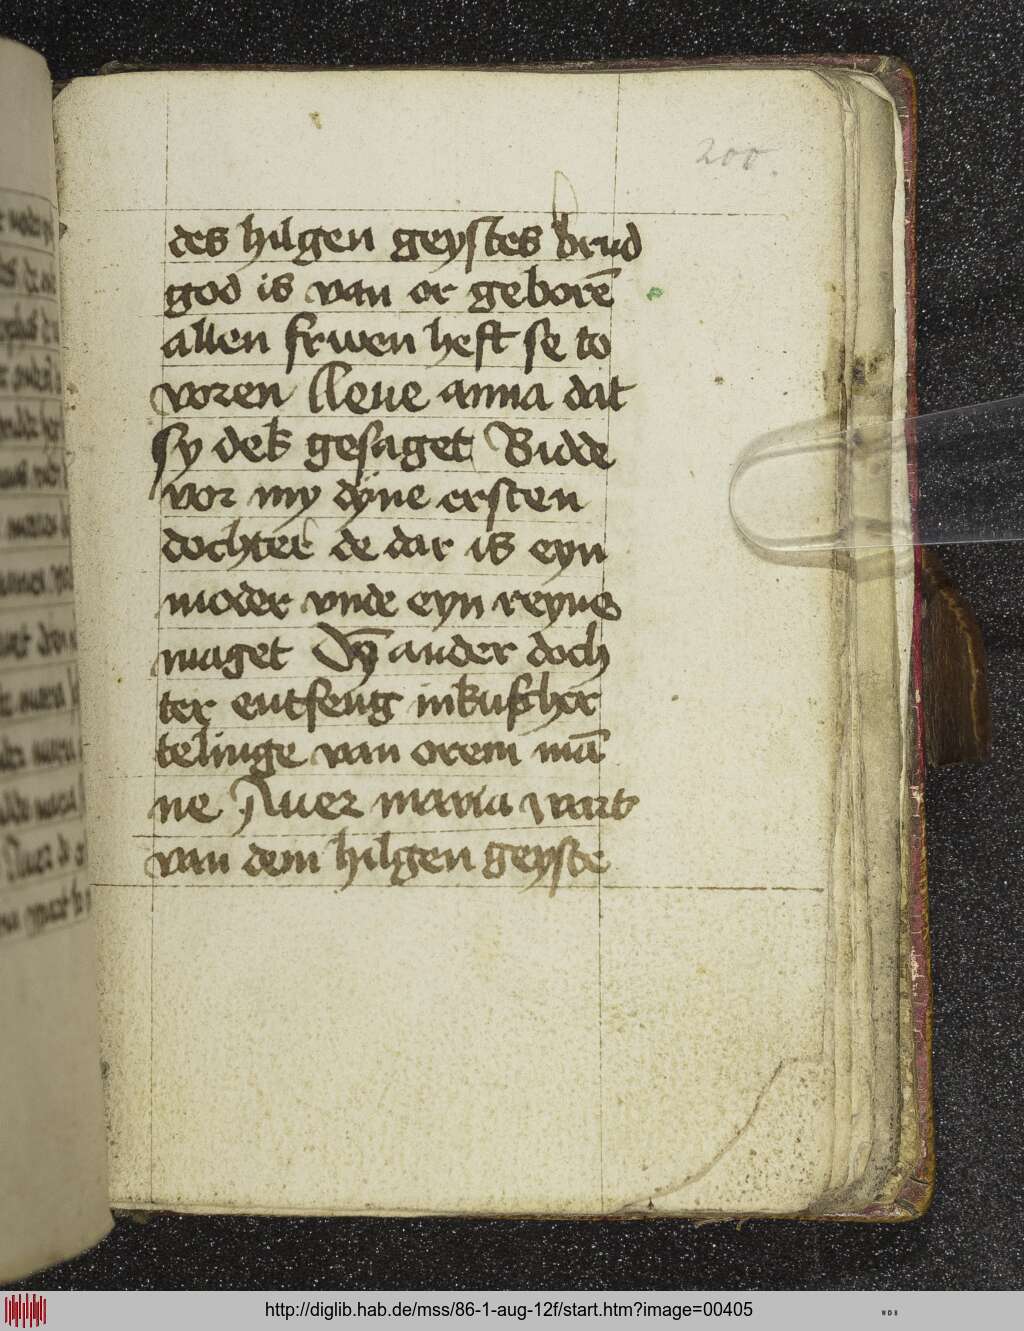 200
des hilgen geystes brud
god is van or geborē
allen frwen heft se to
voren lleue anna dat
sy dek gesaget Bidde
vor my dyne ersten
dochter de dar is eyn
moder vnde eyn reyne
maget Dy̅ ander doch
ter entfeng inkußher
telinge van orem mā
ne Auer maria wart
van dem hilgen geyste
http://diglib.hab.de/mss/86-1-aug-12f/start.htm?image=00405